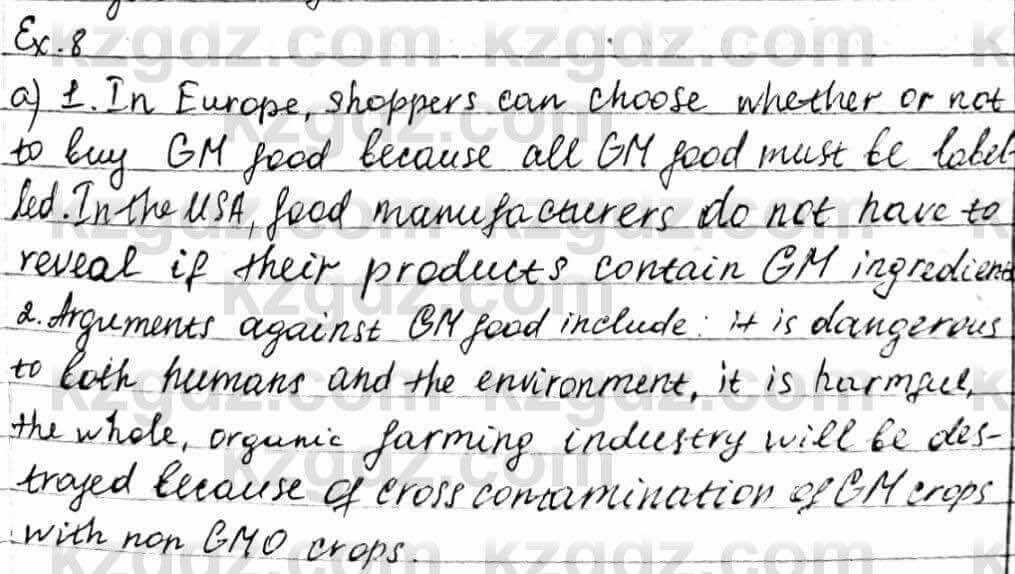 Ex.8
a) 1. In Europe, shoppers can choose whether or not
to buy GM food because all GM food must be label-
led. In the USA, food manufacturers do not have to
reveal if their products contain GM ingredients
2. Arguments against GM food include: it is dangerous
to both humans and the environment, it is harmful,
the whole, organic farming industry will be des-
troyed because of cross contamination of GM crops
with non GMO crops.